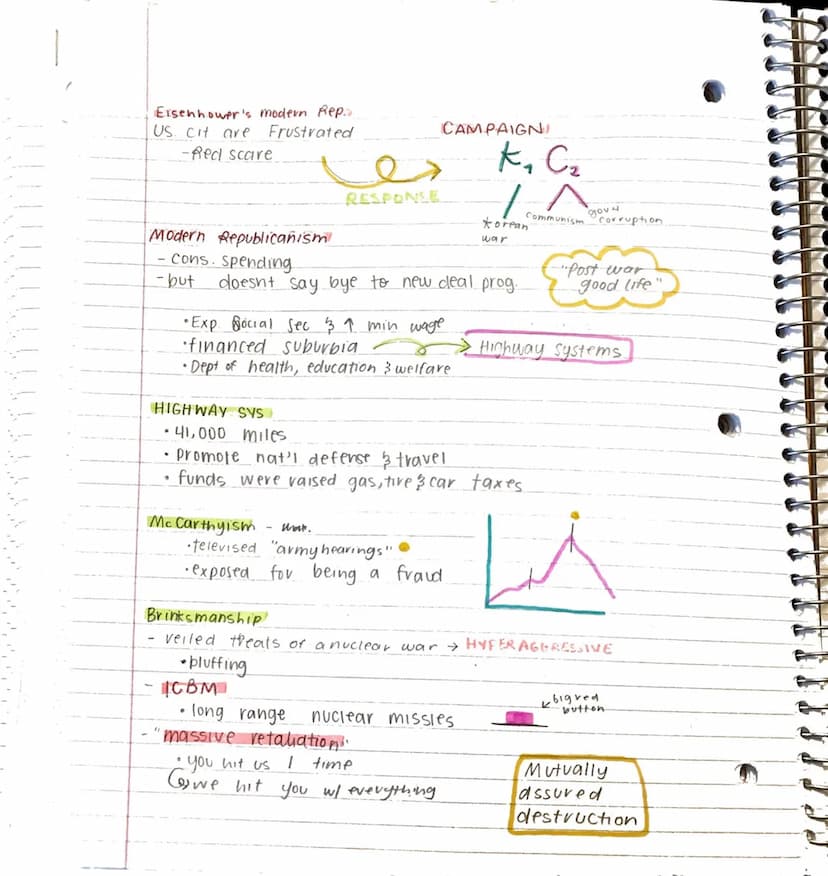 Eisenhower's modern Rep.
US cit are Frustrated
-Red scare
RESPONSE
CAMPAIGN
K1 C2
Korean war
communism
gov't corruption
Modern Republicanism
- cons. spending
-but doesnt say bye to new deal prog.
"Post war
good life"
•Exp Social Sec & ↑ min wage
•financed suburbia → Highway Systems
•Dept of health, education & welfare
HIGHWAY SYS
• 41,000 miles
• promote nat'l defense & travel
• funds were raised gas, tire & car taxes
McCarthyism -
•televised "army hearings"
•exposed for being a fraud
Brinksmanship
- veiled theats of a nuclear war → HYPERAGGRESSIVE
•bluffing
- ICBM
• long range nuclear missles
big red
button
- "massive retaliation"
• you hit us 1 time
we hit you w/ everything
Mutually
assured
destruction